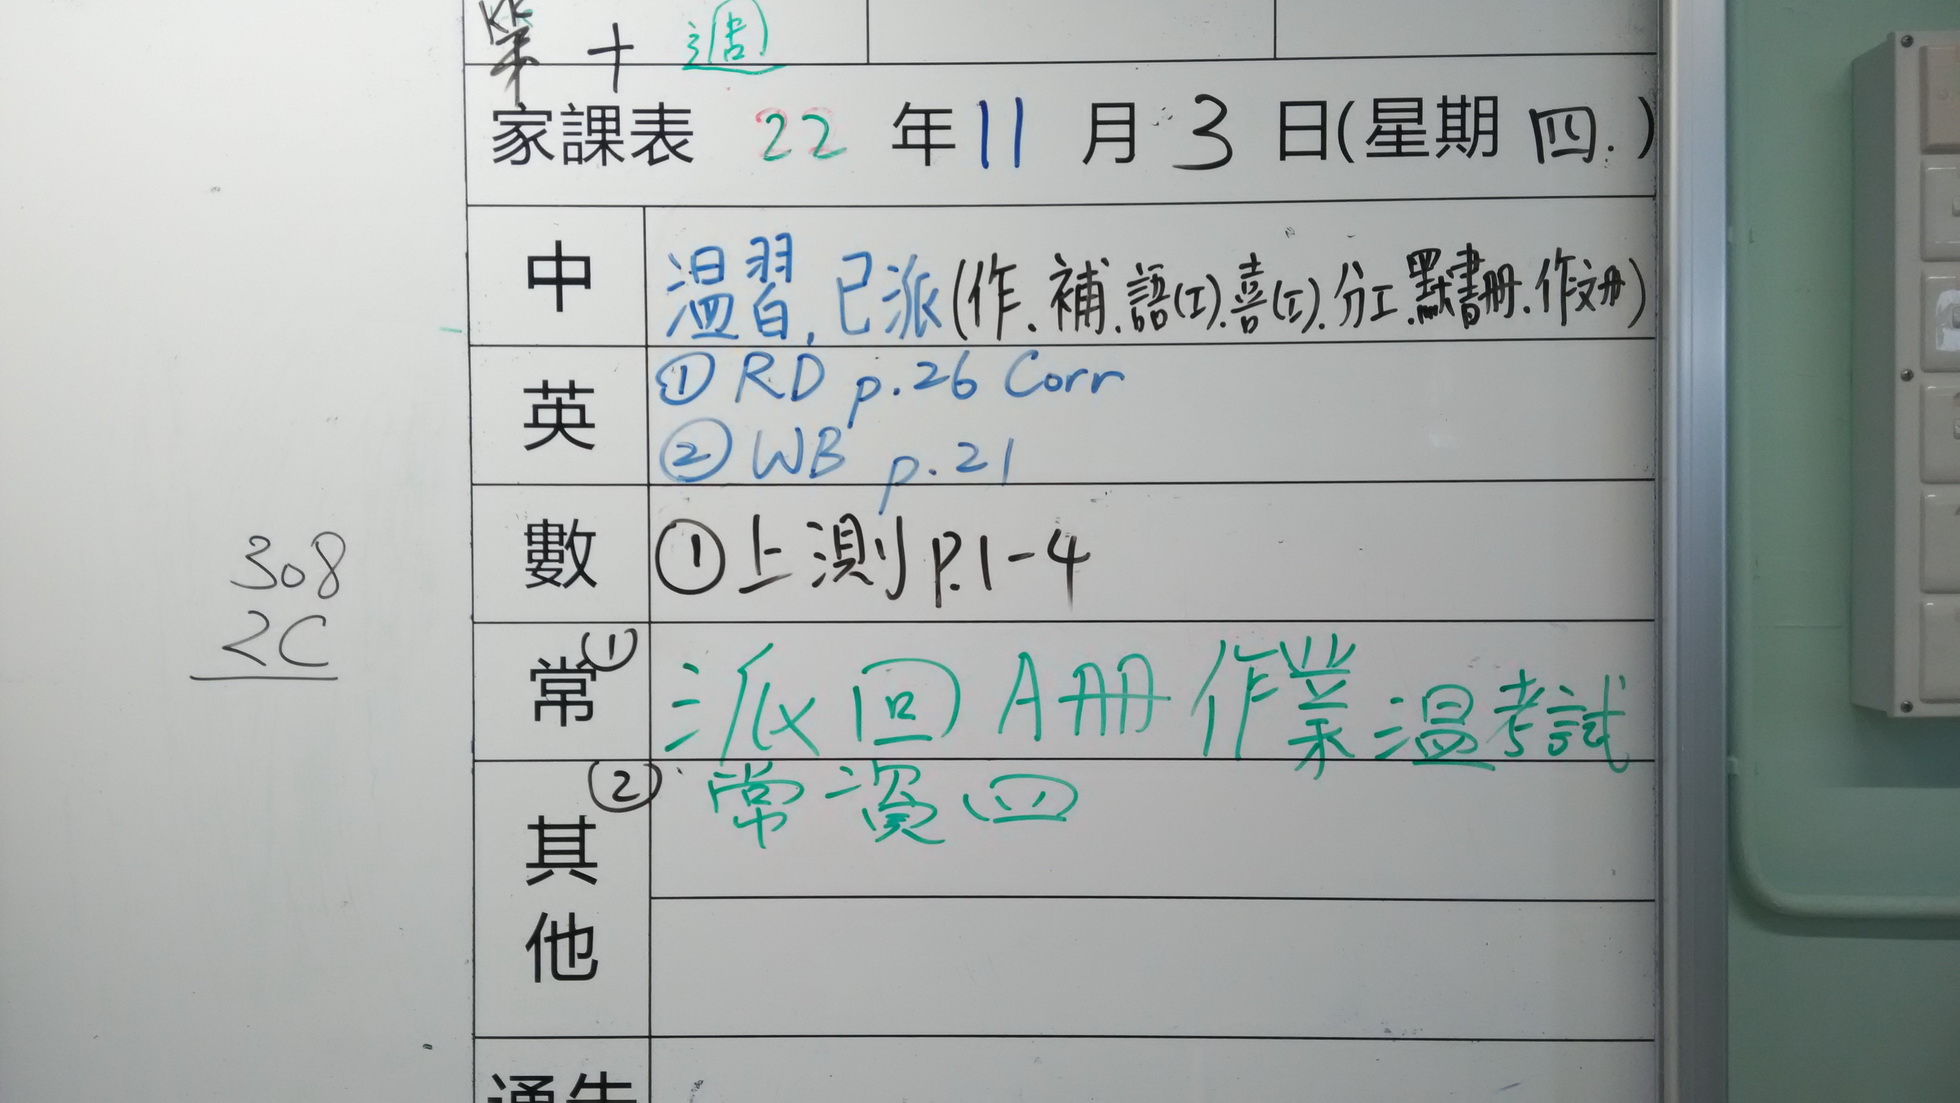 第十週
家課表 22 年 11 月 3 日(星期 四.)
中 溫習,已派(作.補.語(工).喜(工).分工.默書冊.作文冊)
英 ① RD p.26 Corr
② WB p.21
數 ①上測 p.1-4
308
2C
常 (1) 派回A冊作業溫考試
其他 (2) 常資四
通告